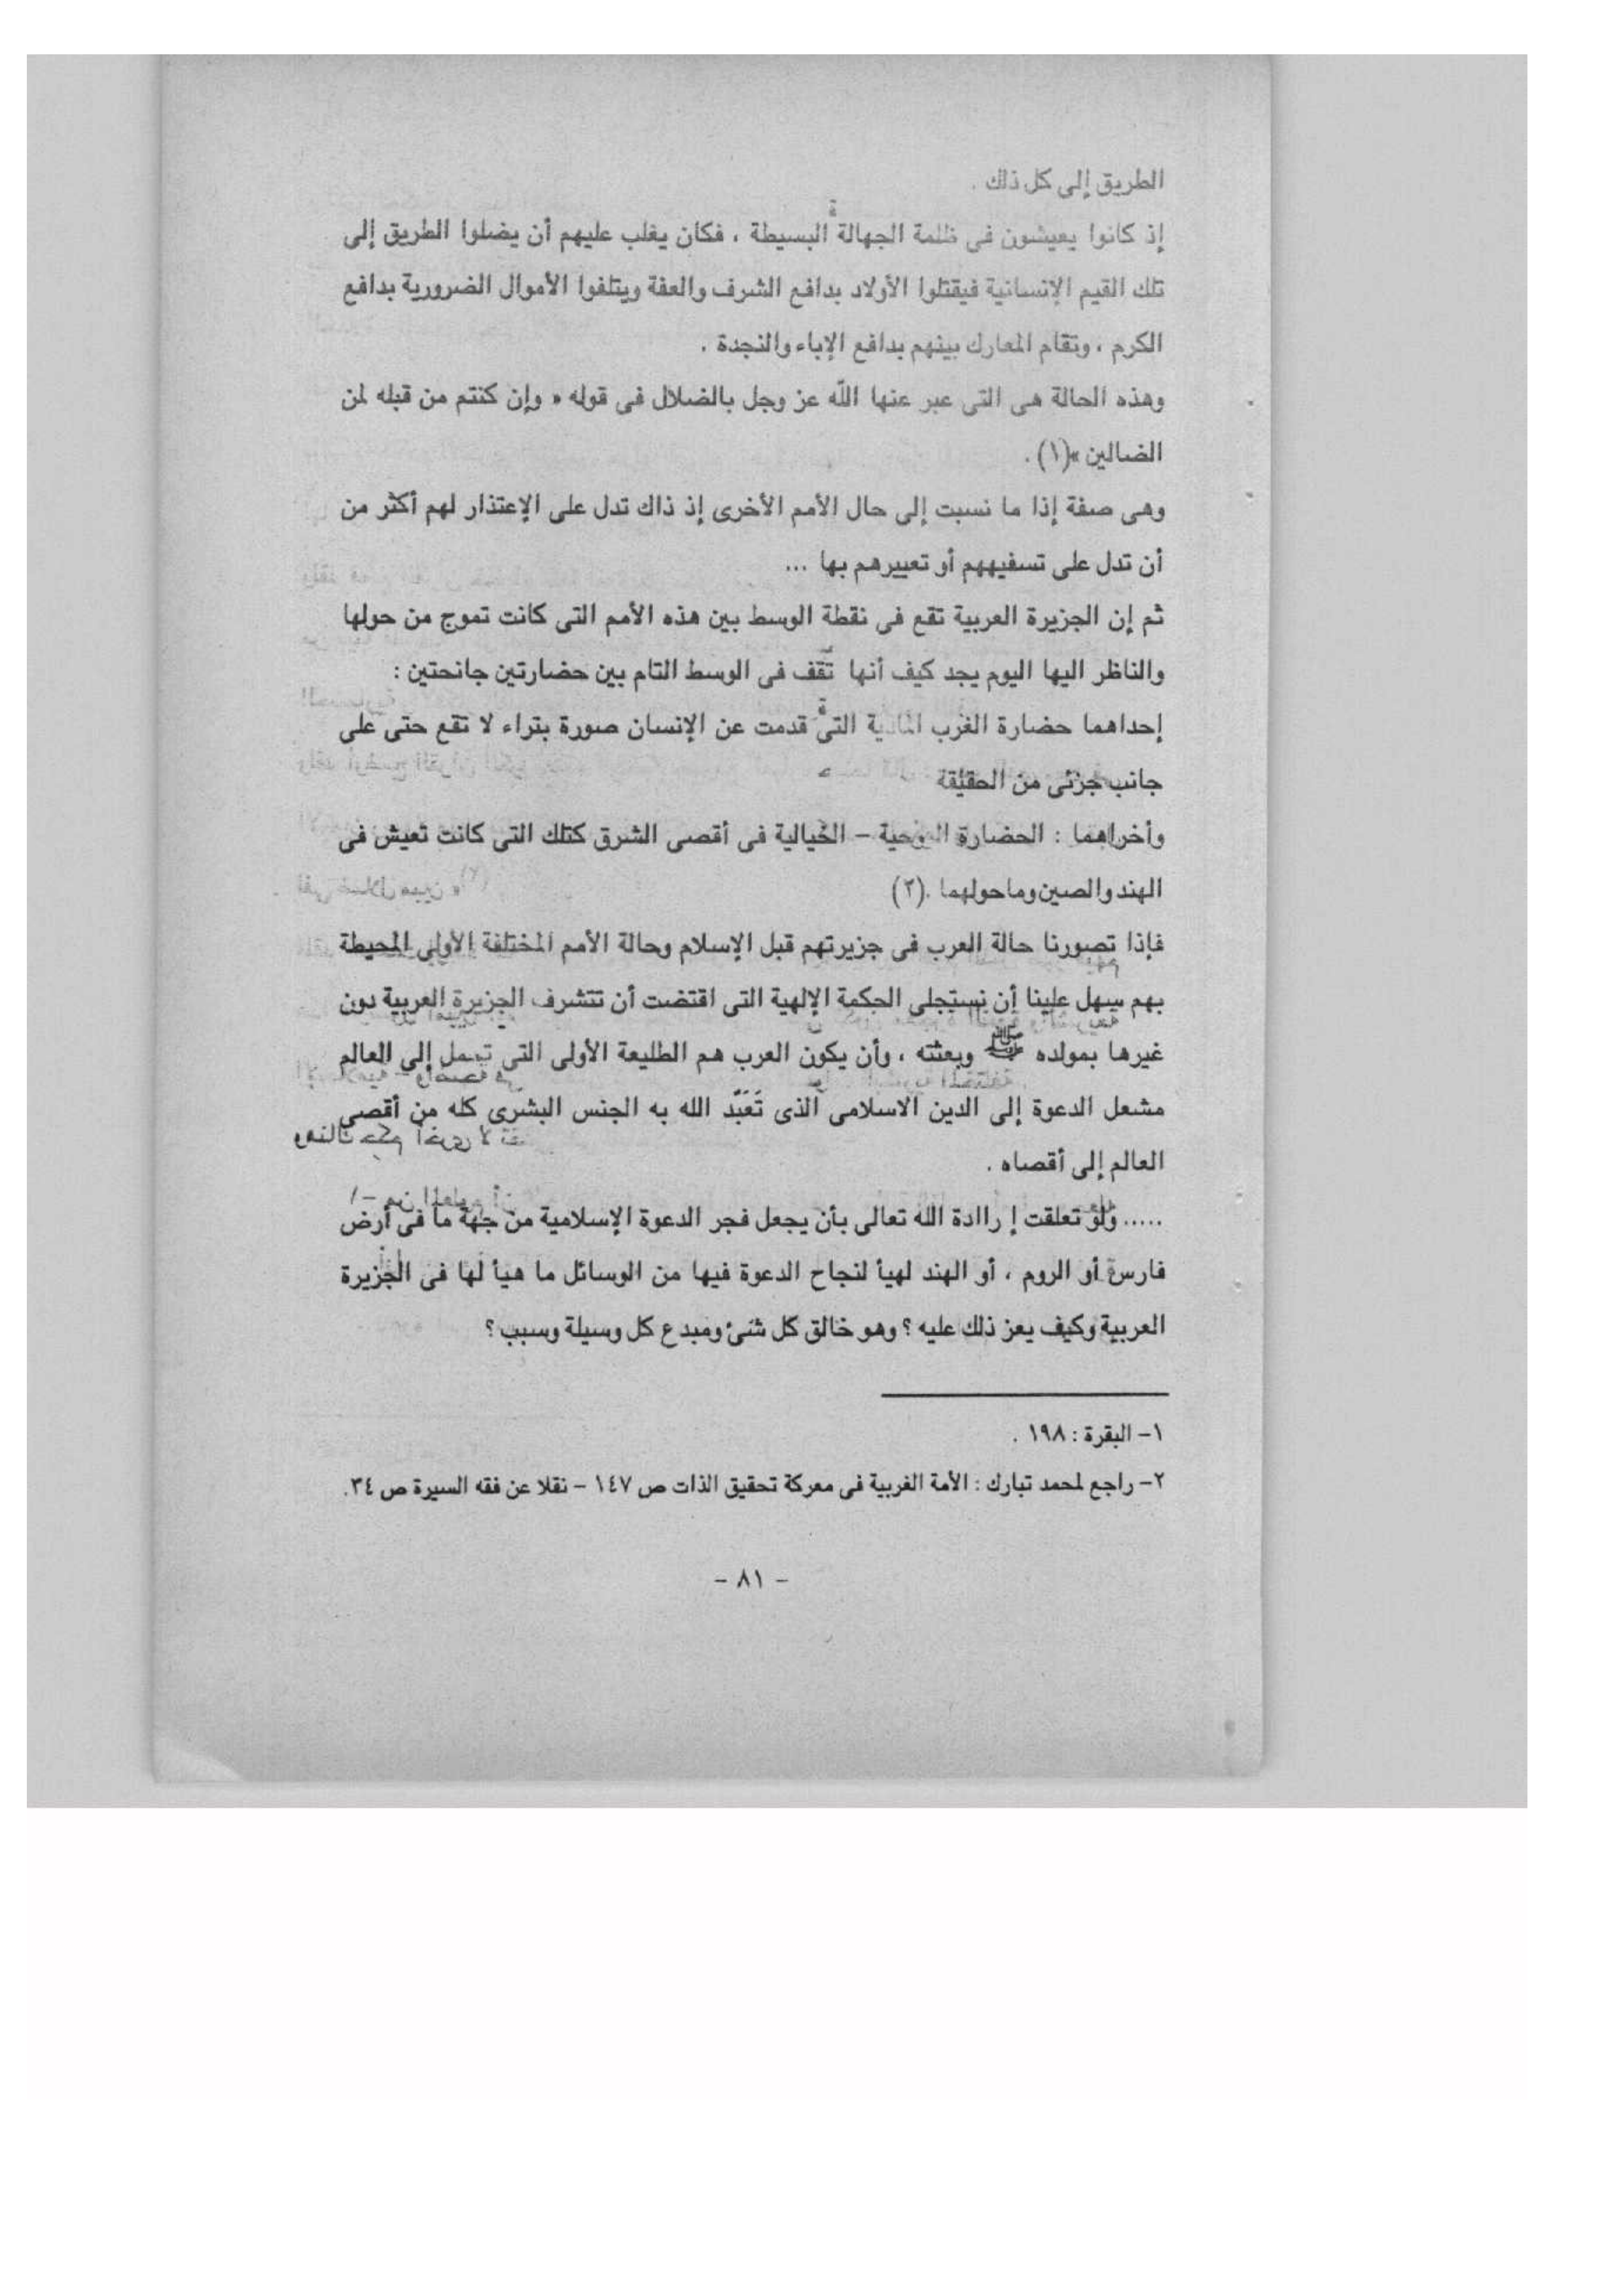 الطريق إلى كل ذلك .
إذ كانوا يعيشون فى ظلمة الجهالة البسيطة ، فكان يغلب عليهم أن يضلوا الطريق إلى
تلك القيم الإنسانية فيقتلوا الأولاد بدافع الشرف والعفة ويتلفوا الأموال الضرورية بدافع
الكرم ، وتقام المعارك بينهم بدافع الإباء والنجدة .
وهذه الحالة هى التى عبر عنها الله عز وجل بالضلال فى قوله « وإن كنتم من قبله لمن
الضالين »(١) .
وهى صفة إذا ما نسبت إلى حال الأمم الأخرى إذ ذاك تدل على الإعتذار لهم أكثر من
أن تدل على تسفيههم أو تعييرهم بها ...
ثم إن الجزيرة العربية تقع فى نقطة الوسط بين هذه الأمم التى كانت تموج من حولها
والناظر اليها اليوم يجد كيف أنها تقف فى الوسط التام بين حضارتين جانحتين :
إحداهما حضارة الغرب المادية التى قدمت عن الإنسان صورة بتراء لا تقع حتى على
جانب جزئى من الحقيقة
وأخراهما : الحضارة الروحية – الخيالية فى أقصى الشرق كتلك التى كانت تعيش فى
الهند والصين وماحولهما .(٢)
فإذا تصورنا حالة العرب فى جزيرتهم قبل الإسلام وحالة الأمم المختلفة الأولى المحيطة
بهم سهل علينا أن نستجلى الحكمة الإلهية التى اقتضت أن تتشرف الجزيرة العربية دون
غيرها بمولده ﷺ وبعثته ، وأن يكون العرب هم الطليعة الأولى التى تحمل إلى العالم
مشعل الدعوة إلى الدين الاسلامى الذى تَعَبَّد الله به الجنس البشرى كله من أقصى
العالم إلى أقصاه .
..... ولو تعلقت إ راادة الله تعالى بأن يجعل فجر الدعوة الإسلامية من جهة ما فى أرض
فارس أو الروم ، أو الهند لهيأ لنجاح الدعوة فيها من الوسائل ما هيأ لها فى الجزيرة
العربية وكيف يعز ذلك عليه ؟ وهو خالق كل شئ ومبدع كل وسيلة وسبب ؟
١- البقرة : ١٩٨ .
٢- راجع لمحمد تبارك : الأمة الغربية فى معركة تحقيق الذات ص ١٤٧ – نقلا عن فقه السيرة ص ٣٤.
- ٨١ -